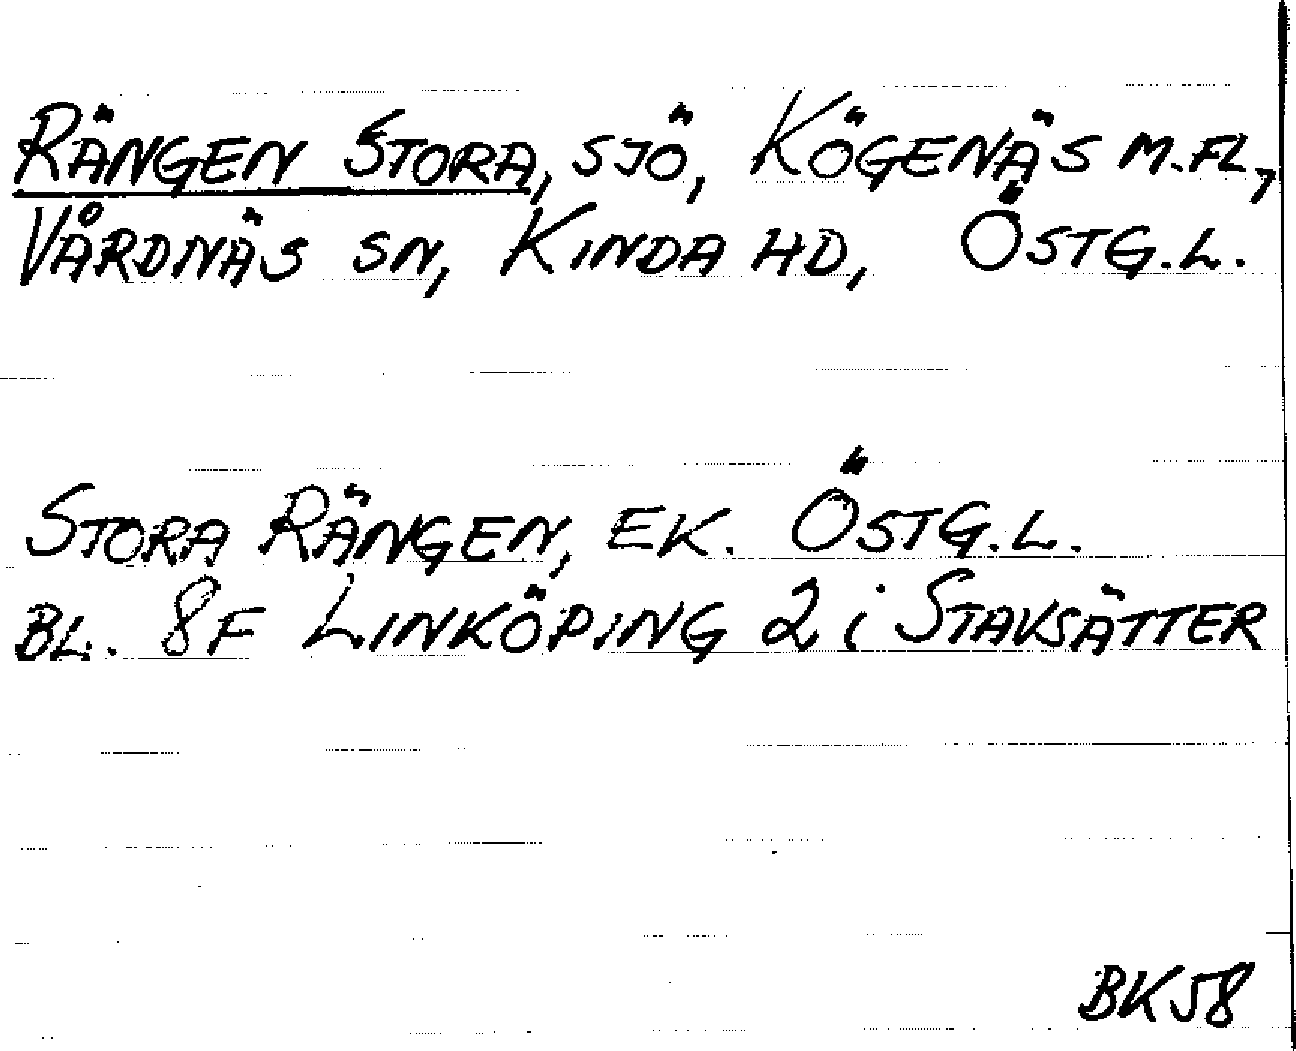 RÄNGEN STORA, SJÖ, KÖGENÄS M.FL,
VÅRDNÄS SN, KINDA HD, ÖSTG.L.
STORA RÄNGEN, EK. ÖSTG.L.
BL. 8F LINKÖPING 2 i STAVSÄTTER
BK58